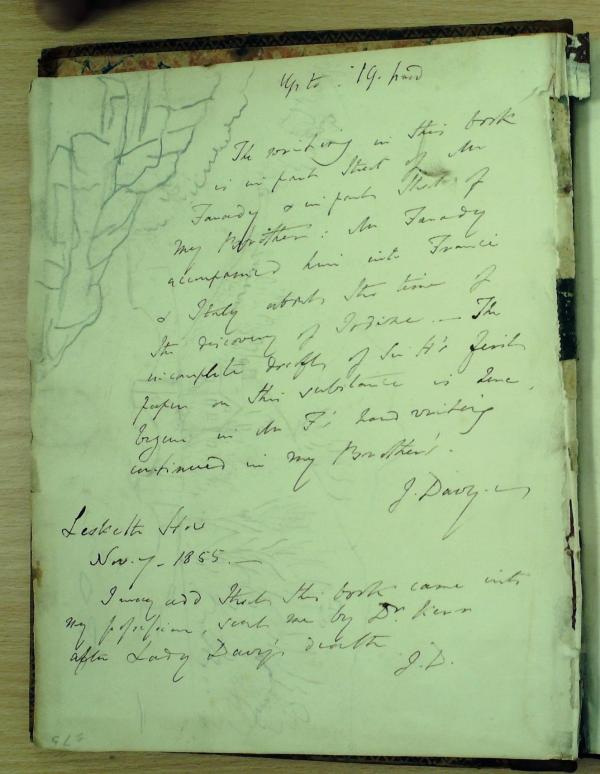 Up to 19. 
The writing in this book
is in part that of Mr
Faraday & in part that of
my Brother: Mr Faraday
accompanied him into France
& Italy about the time of
the discovery of Iodine — The
incomplete draft of Sir H's first
paper on this substance is here,
begun in Mr F's hand writing
continued in my Brother's.
J. Davy.
Lesketh How
Nov. 7. 1855. —
I may add that this book came into
my possession, sent me by Dr.
after Lady Davy's death
J.D.